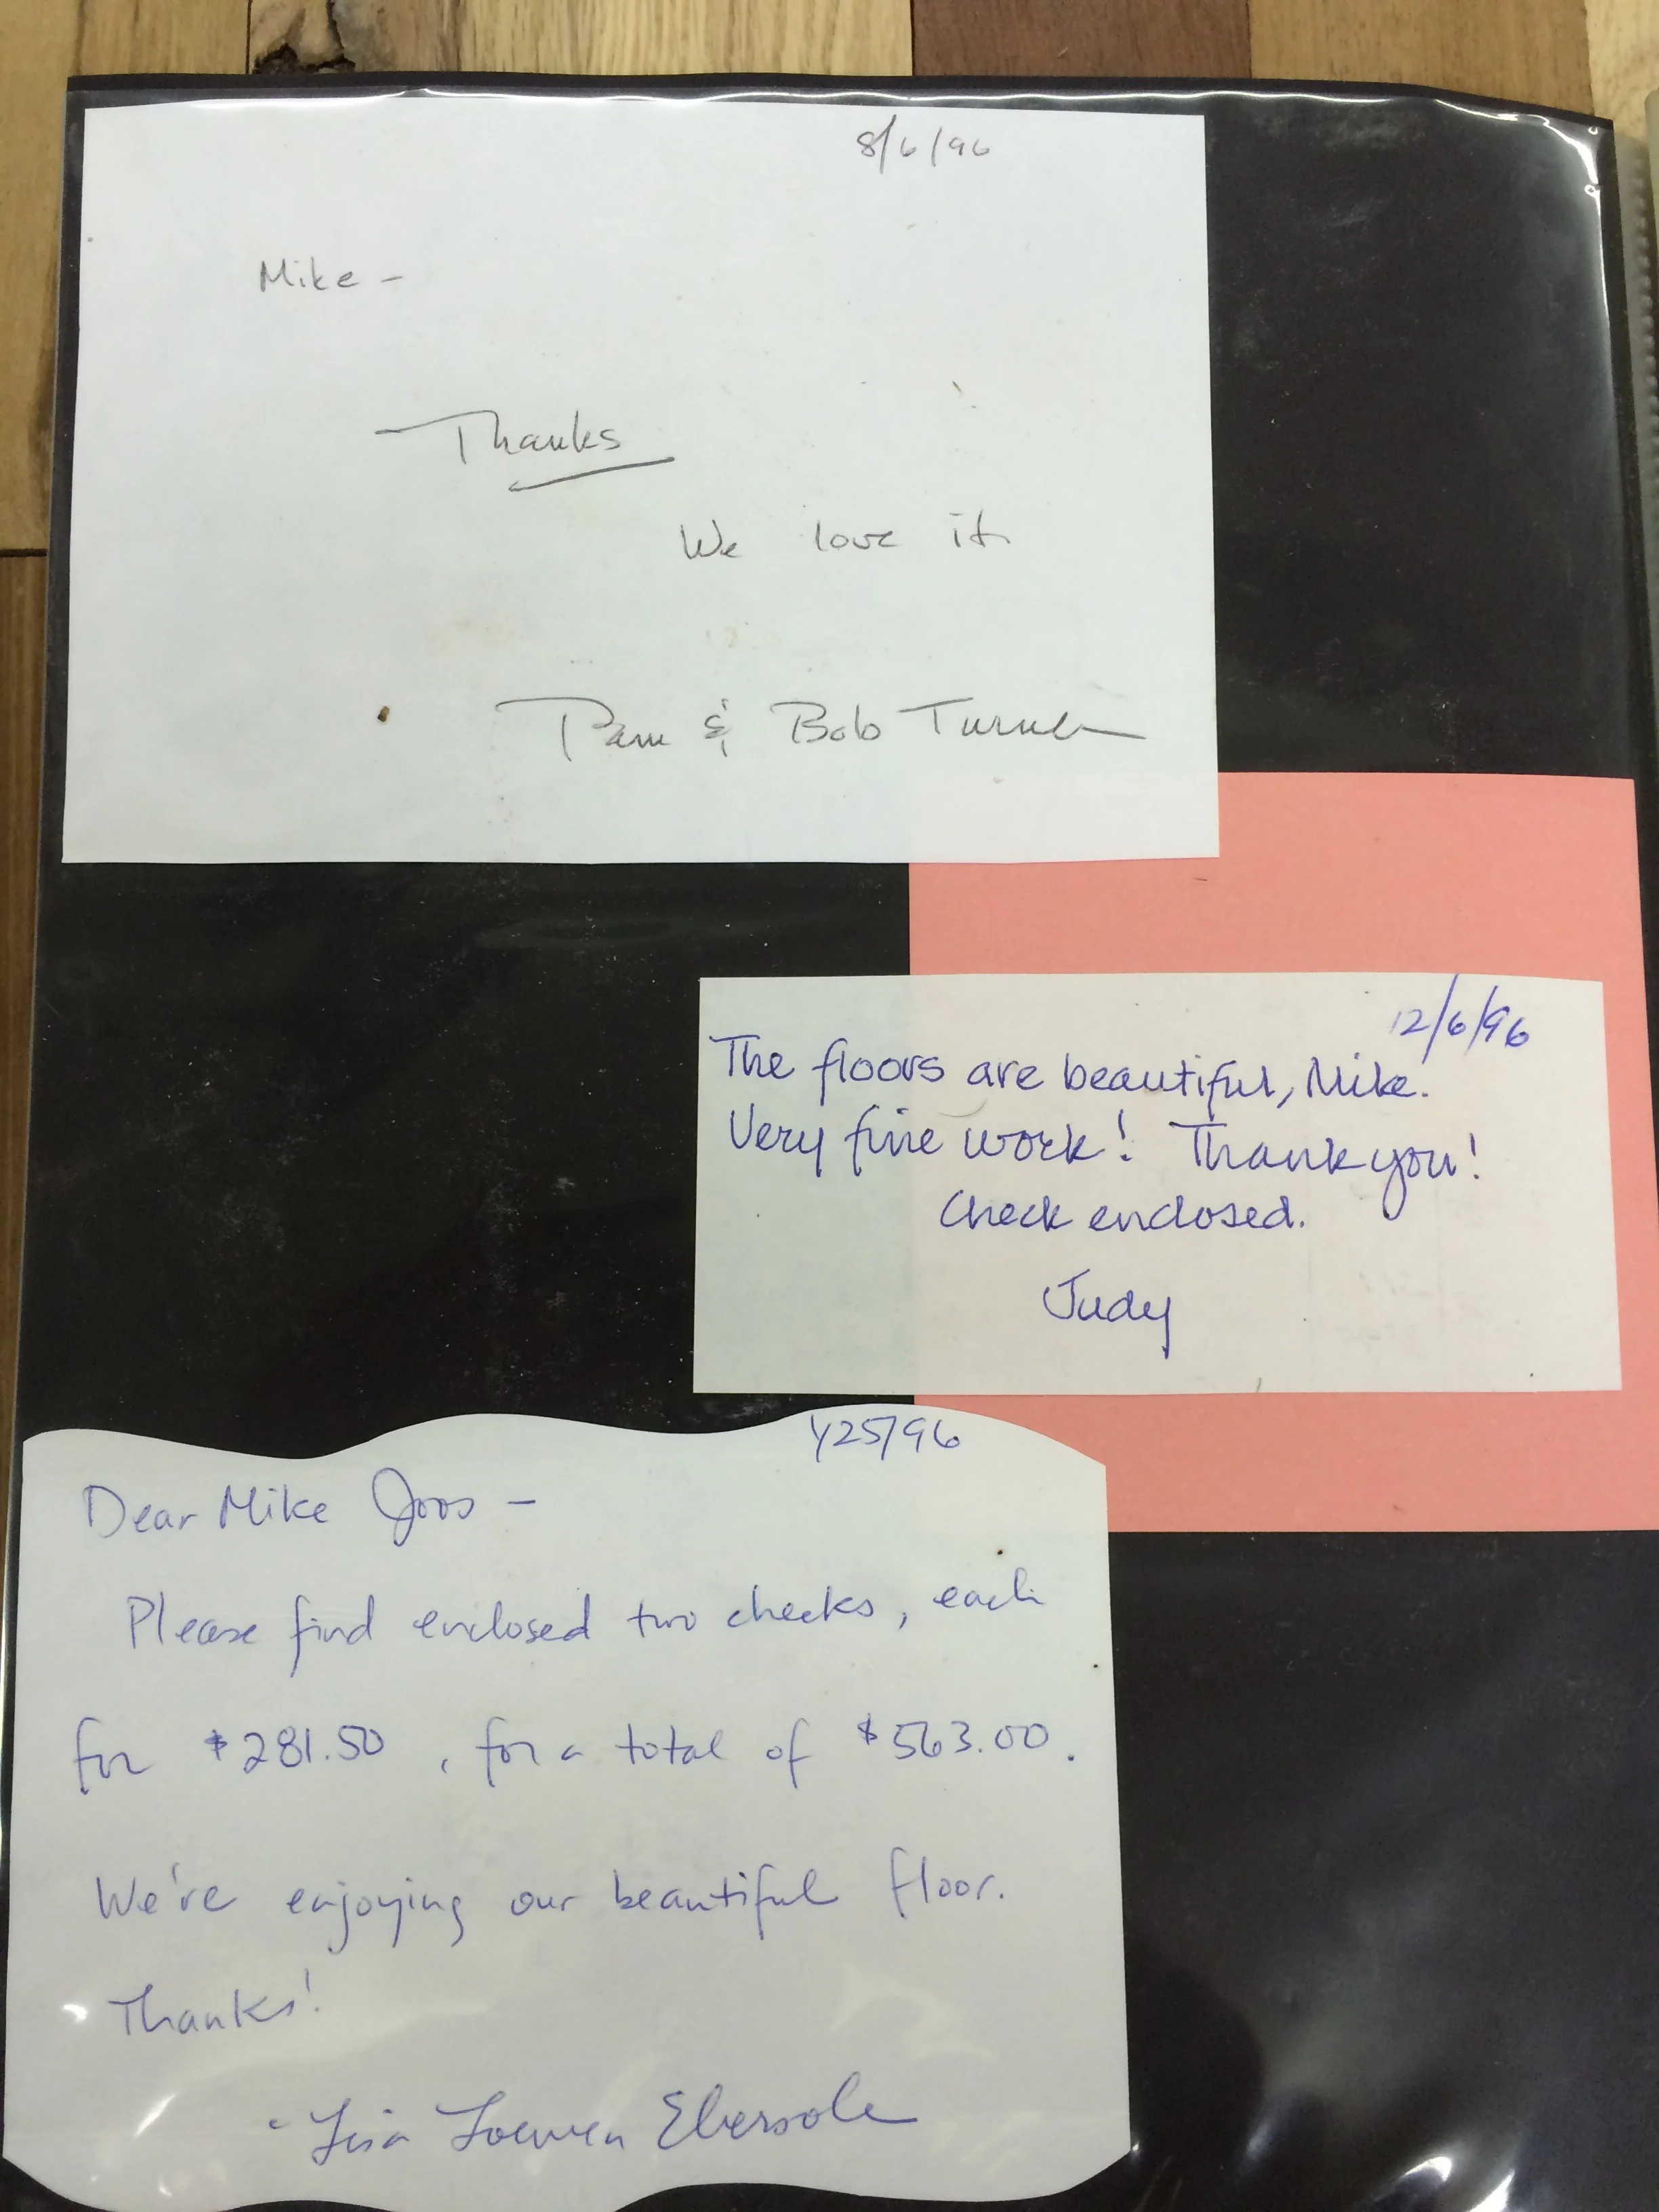 8/6/96
Mike -
Thanks
We love it
Pam & Bob Turner
12/6/96
The floors are beautiful, Mike.
Very fine work! Thank you!
Check enclosed.
Judy
1/25/96
Dear Mike Joos -
Please find enclosed two checks, each
for $281.50, for a total of $563.00.
We're enjoying our beautiful floor.
Thanks!
- Lisa Loewen Ebersole